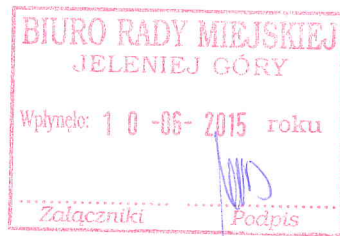 BIURO RADY MIEJSKIEJ
JELENIEJ GÓRY
Wpłynęło: 1 0 -06- 2015 roku
Załączniki Podpis